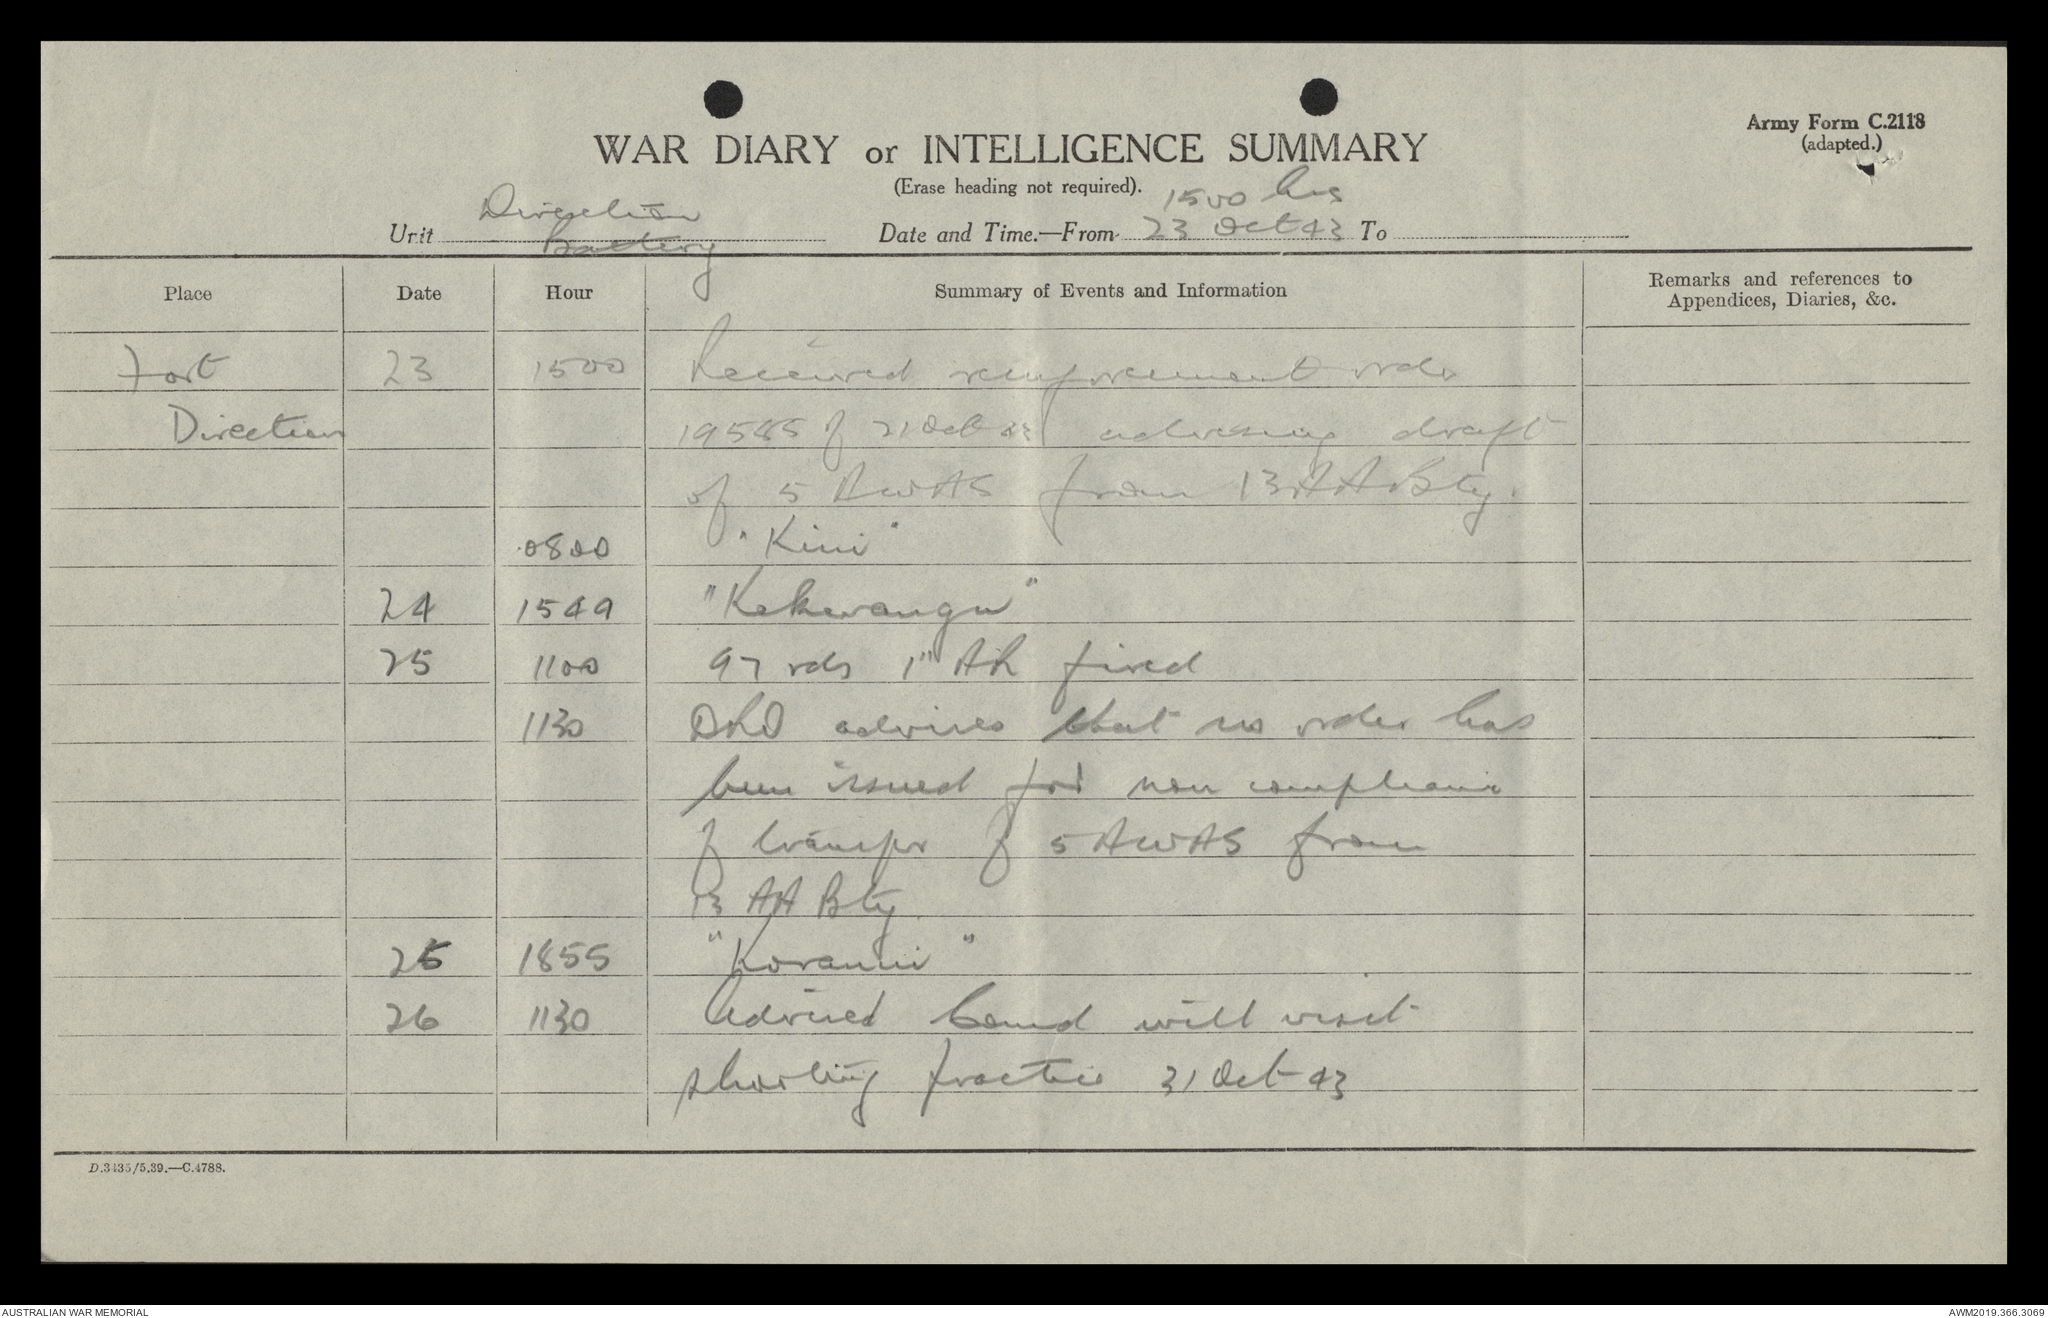 Army Form C.2118
(adapted.)
WAR DIARY or INTELLIGENCE SUMMARY
(Erase heading not required).
Unit Direction Battery
Date and Time.—From 1500 hrs 23 Oct 43 To
Place Date Hour Summary of Events and Information Remarks and references to Appendices, Diaries, &c.
Fort 23 1500 Received reinforcement order
Direction 19585 of 21 Oct 43 advising draft
of 5 AWAS from 13 AA Bty.
0800 "Kini"
24 1549 "Kekerangu"
25 1100 97 rds 1" AR fired
1130 advises that no order has
been issued for non compliance
of transfer of 5 AWAS from
13 AA Bty
25 1855 "Koranui"
26 1130 Advised Comd will visit
shooting practice 31 Oct 43
D.3435/5.39.—C.4788.
AUSTRALIAN WAR MEMORIAL
AWM2019.366.3069